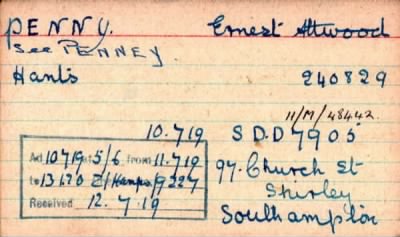 PENNY. Ernest Attwood
See PENNEY
Hants 240829
11/M/48442
10.7.19 SDD7905
Ad. 10719 at 5/6 from 11.7.19
to 13.1.20 9227
97. Church St
Received 12.7.19
Shirley
Southampton